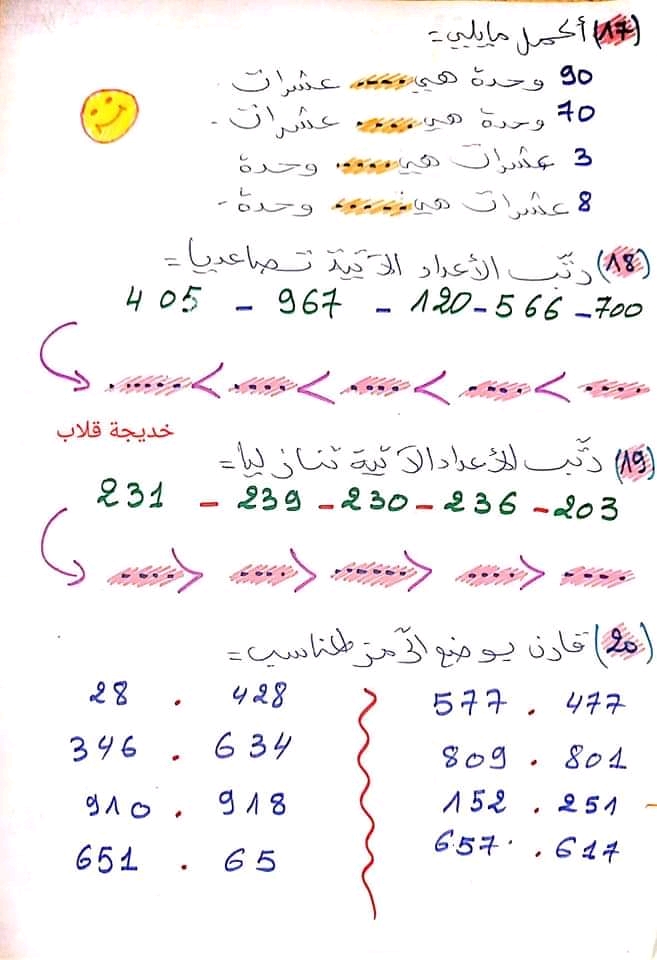 (17) أكمل مايلي =
90 وحدة هي ..... عشرات .
70 وحدة هي ..... عشرات .
3 عشرات هي ..... وحدة
8 عشرات هي ..... وحدة .
(18) رتّب الأعداد الآتية تصاعديا =
405 - 967 - 120 - 566 - 700
..... < ..... < ..... < ..... < .....
خديجة قلاب
(19) رتّب الأعداد الآتية تنازليا =
231 - 239 - 230 - 236 - 203
..... > ..... > ..... > ..... > .....
(20) قارن بوضع الرّمز المناسب =
28 . 428
577 . 477
346 . 634
809 . 801
910 . 918
152 . 251
651 . 65
657 . 617